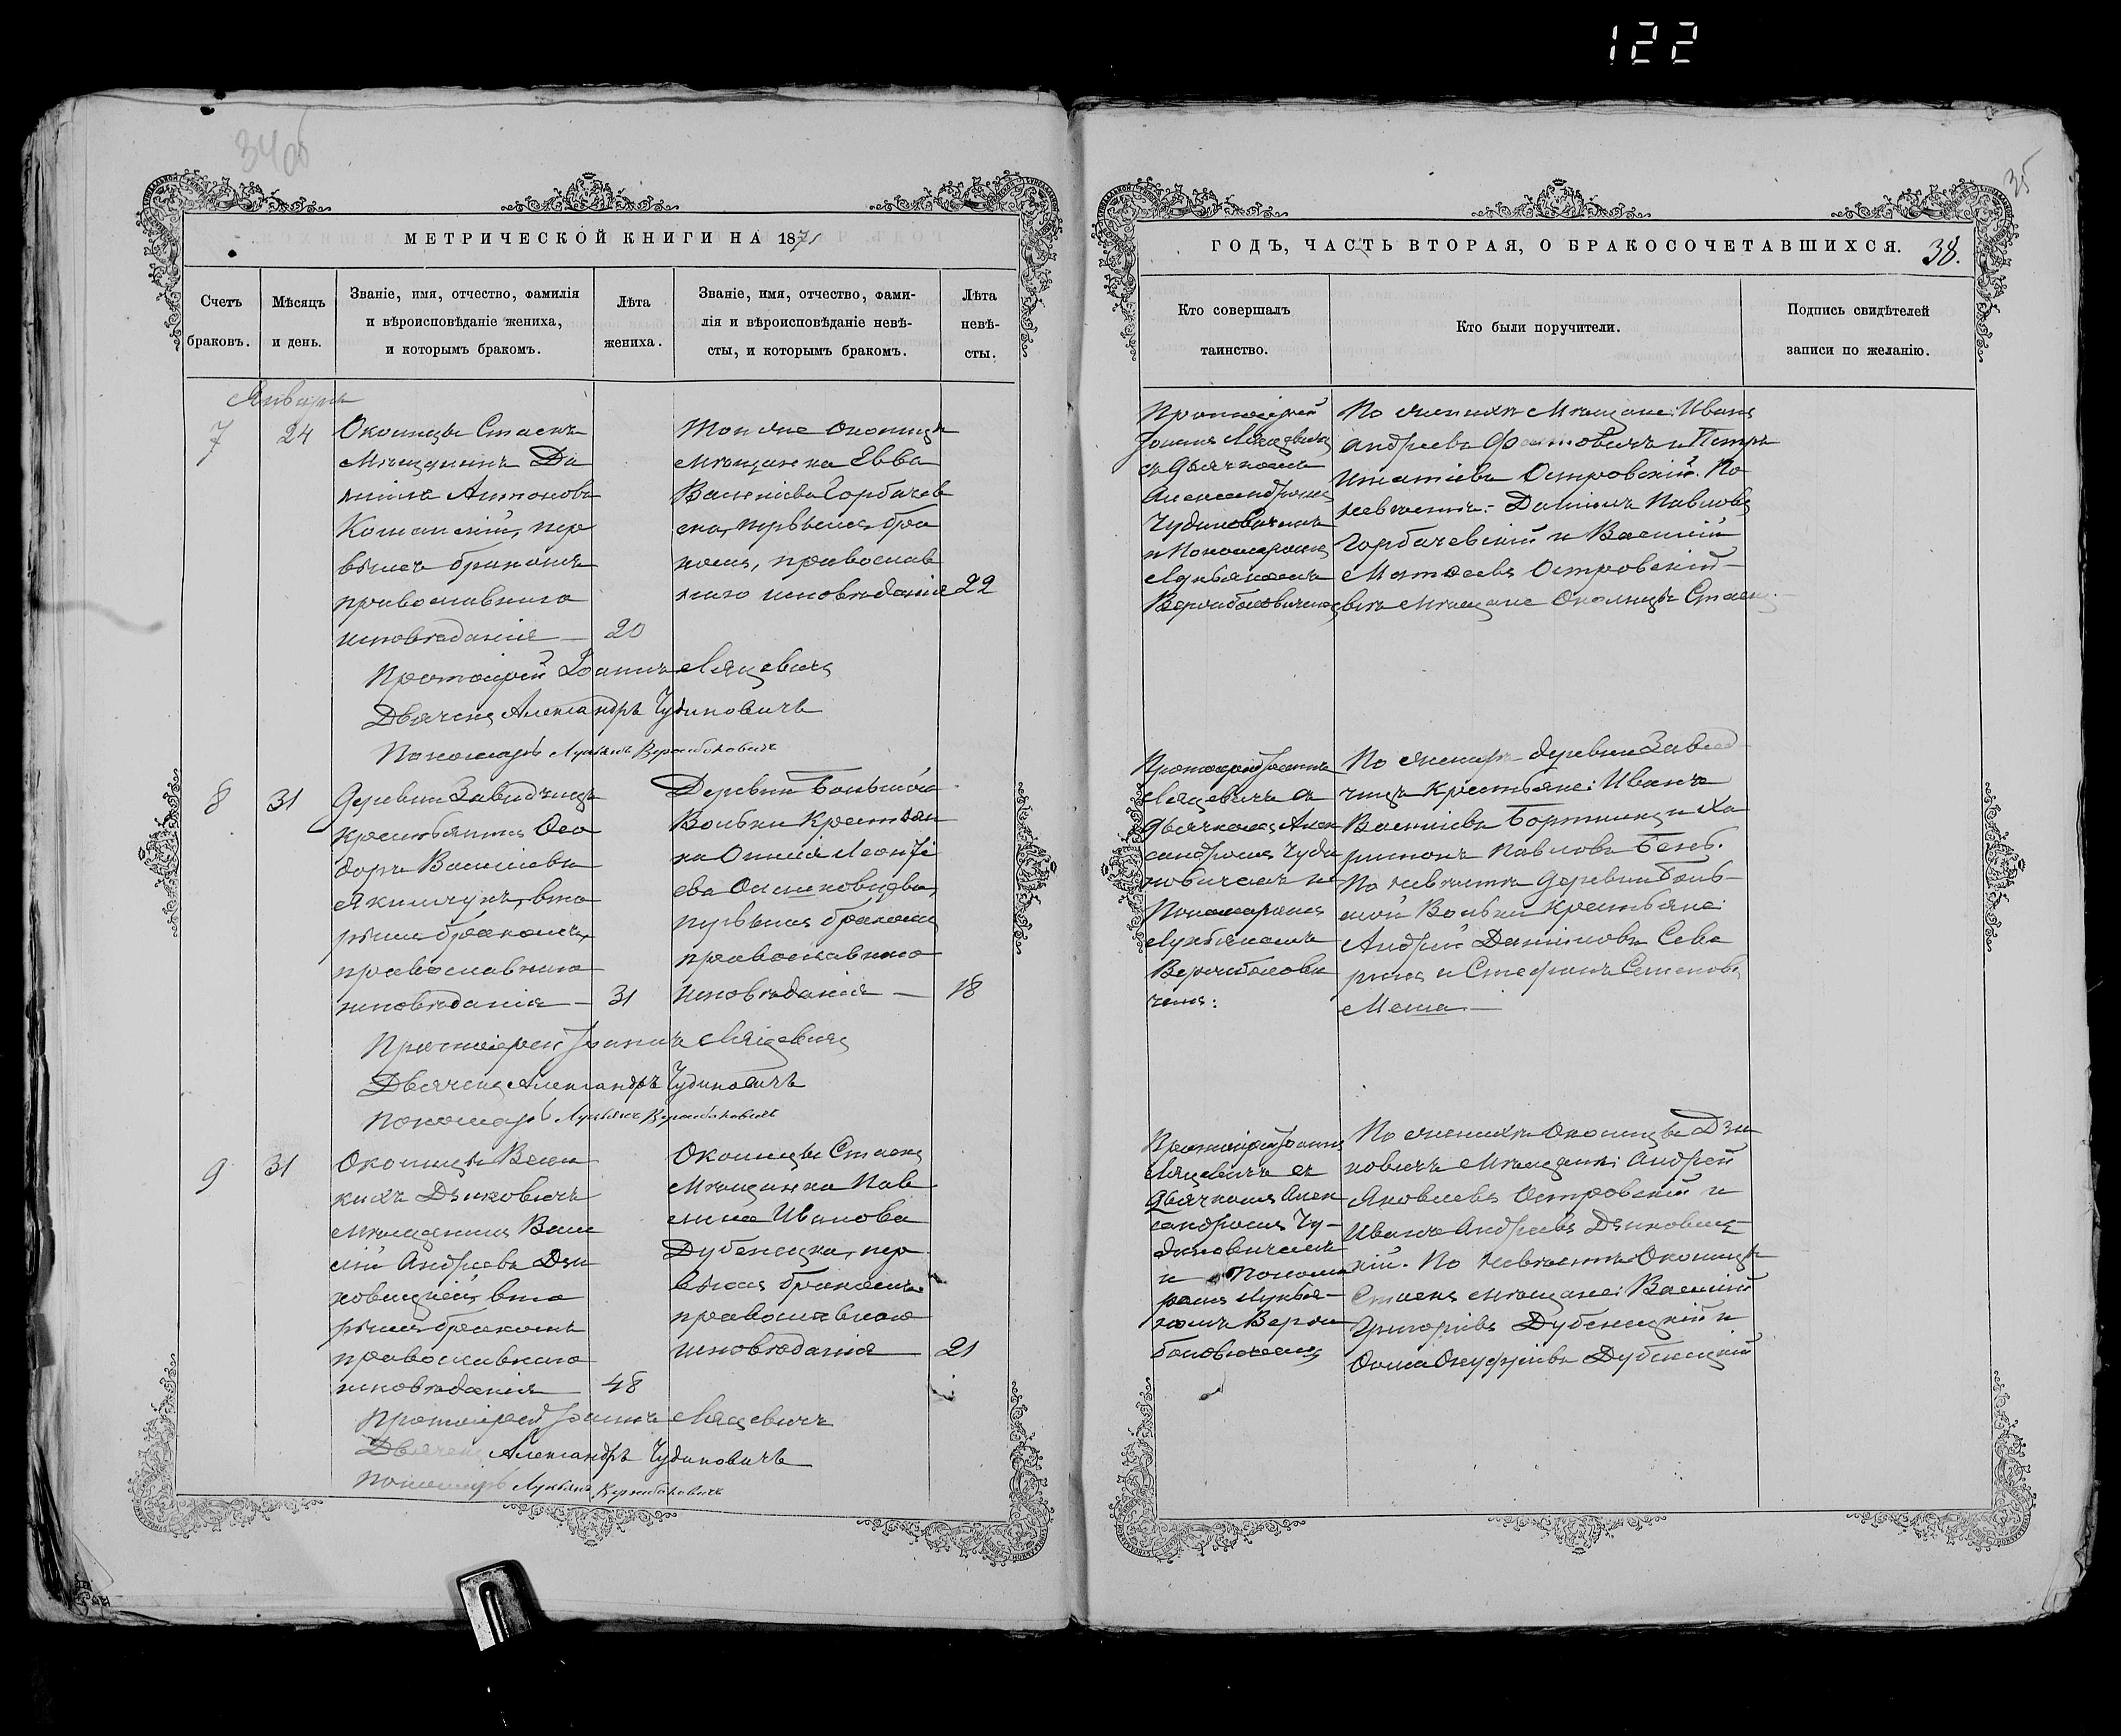 122
34об
35
МЕТРИЧЕСКОЙ КНИГИ НА 1871
Счетъ браковъ.
Мѣсяцъ и день.
Званіе, имя, отчество, фамилія и вѣроисповѣданіе жениха, и которымъ бракомъ.
Лѣта жениха.
Званіе, имя, отчество, фами-
лія и вѣроисповѣданіе невѣ-
сты, и которымъ бракомъ.
Лѣта невѣ-
сты.
Январь
7
24
Околицы Стаекъ
мѣщанинъ Да
ніилъ Антоновъ
пер
вымъ бракомъ
православнаго
исповѣданія —
20
Той же околицы
мѣщанка Евва
Васильева Горбачев
ска, первымъ бра
комъ, православ
наго исповѣданія
22
Протоіерей Іоаннъ Лящевичъ
Дьячекъ Александръ Чудиновичъ
Пономарь Лукьянъ
8
31
Деревни Завидчицъ
крестьянинъ Ѳео
доръ Васильевъ
Якимчукъ, вто
рымъ бракомъ,
православнаго
исповѣданія —
31
Деревни Большой
Вольки крестьян
ка
ева
первымъ бракомъ
православнаго
исповѣданія —
18
Протоіерей Іоаннъ Лящевичъ
Дьячекъ Александръ Чудиновичъ
Пономарь Лукьянъ
9
31
Околицы Вели
кихъ Дзиковичъ
мѣщанинъ Васи
лій Андреевъ Дзи
ковицкій, вто
рымъ бракомъ
православнаго
исповѣданія
48
Околицы Стаекъ
мѣщанка Пав
лина Иванова
Дубенецка, пер
вымъ бракомъ
православнаго
исповѣданія
21
Протоіерей Іоаннъ Лящевичъ
Дьячекъ Александръ Чудиновичъ
Пономарь Лукьянъ
ГОДЪ, ЧАСТЬ ВТОРАЯ, О БРАКОСОЧЕТАВШИХСЯ.
38.
Кто совершалъ таинство.
Кто были поручители.
Подпись свидѣтелей записи по желанію.
Протоіерей
Іоаннъ Лящевичъ
съ дьячкомъ
Александромъ
Чудиновичемъ
и Пономаремъ
Лукьяномъ
По женихѣ мѣщане: Иванъ
Андреевъ и Петръ
Игнатіевъ Островскій. По
невѣстѣ: Даніилъ Павловъ
Горбачевскій и Василій
Матѳеевъ Островскій —
мѣщане околицы Стаекъ —
Протоіерей Іоаннъ
Лящевичъ съ
дьячкомъ Алек
сандромъ Чуди
новичемъ и
Пономаремъ
Лукьяномъ
чемъ:
По женихѣ деревни Завид
чицъ крестьяне: Иванъ
Васильевъ Бортникъ и Ха
ритонъ Павловъ
По невѣстѣ деревни Боль-
шой Вольки крестьяне:
Андрей Даниловъ Севе
ринъ и Стефанъ Семеновъ
Протоіерей Іоаннъ
Лящевичъ съ
дьячкомъ Алек
сандромъ Чу-
диновичемъ
и Понома
ремъ Лукья-
номъ
По женихѣ околицы Дзи
ковичъ мѣщане: Андрей
Яковлевъ Островскій и
Иванъ Андреевъ Дзиковиц-
кій. По невѣстѣ околицы
Стаекъ мѣщане: Василій
Григорьевъ Дубенецкій и
Ѳома Онуфріевъ Дубенецкій